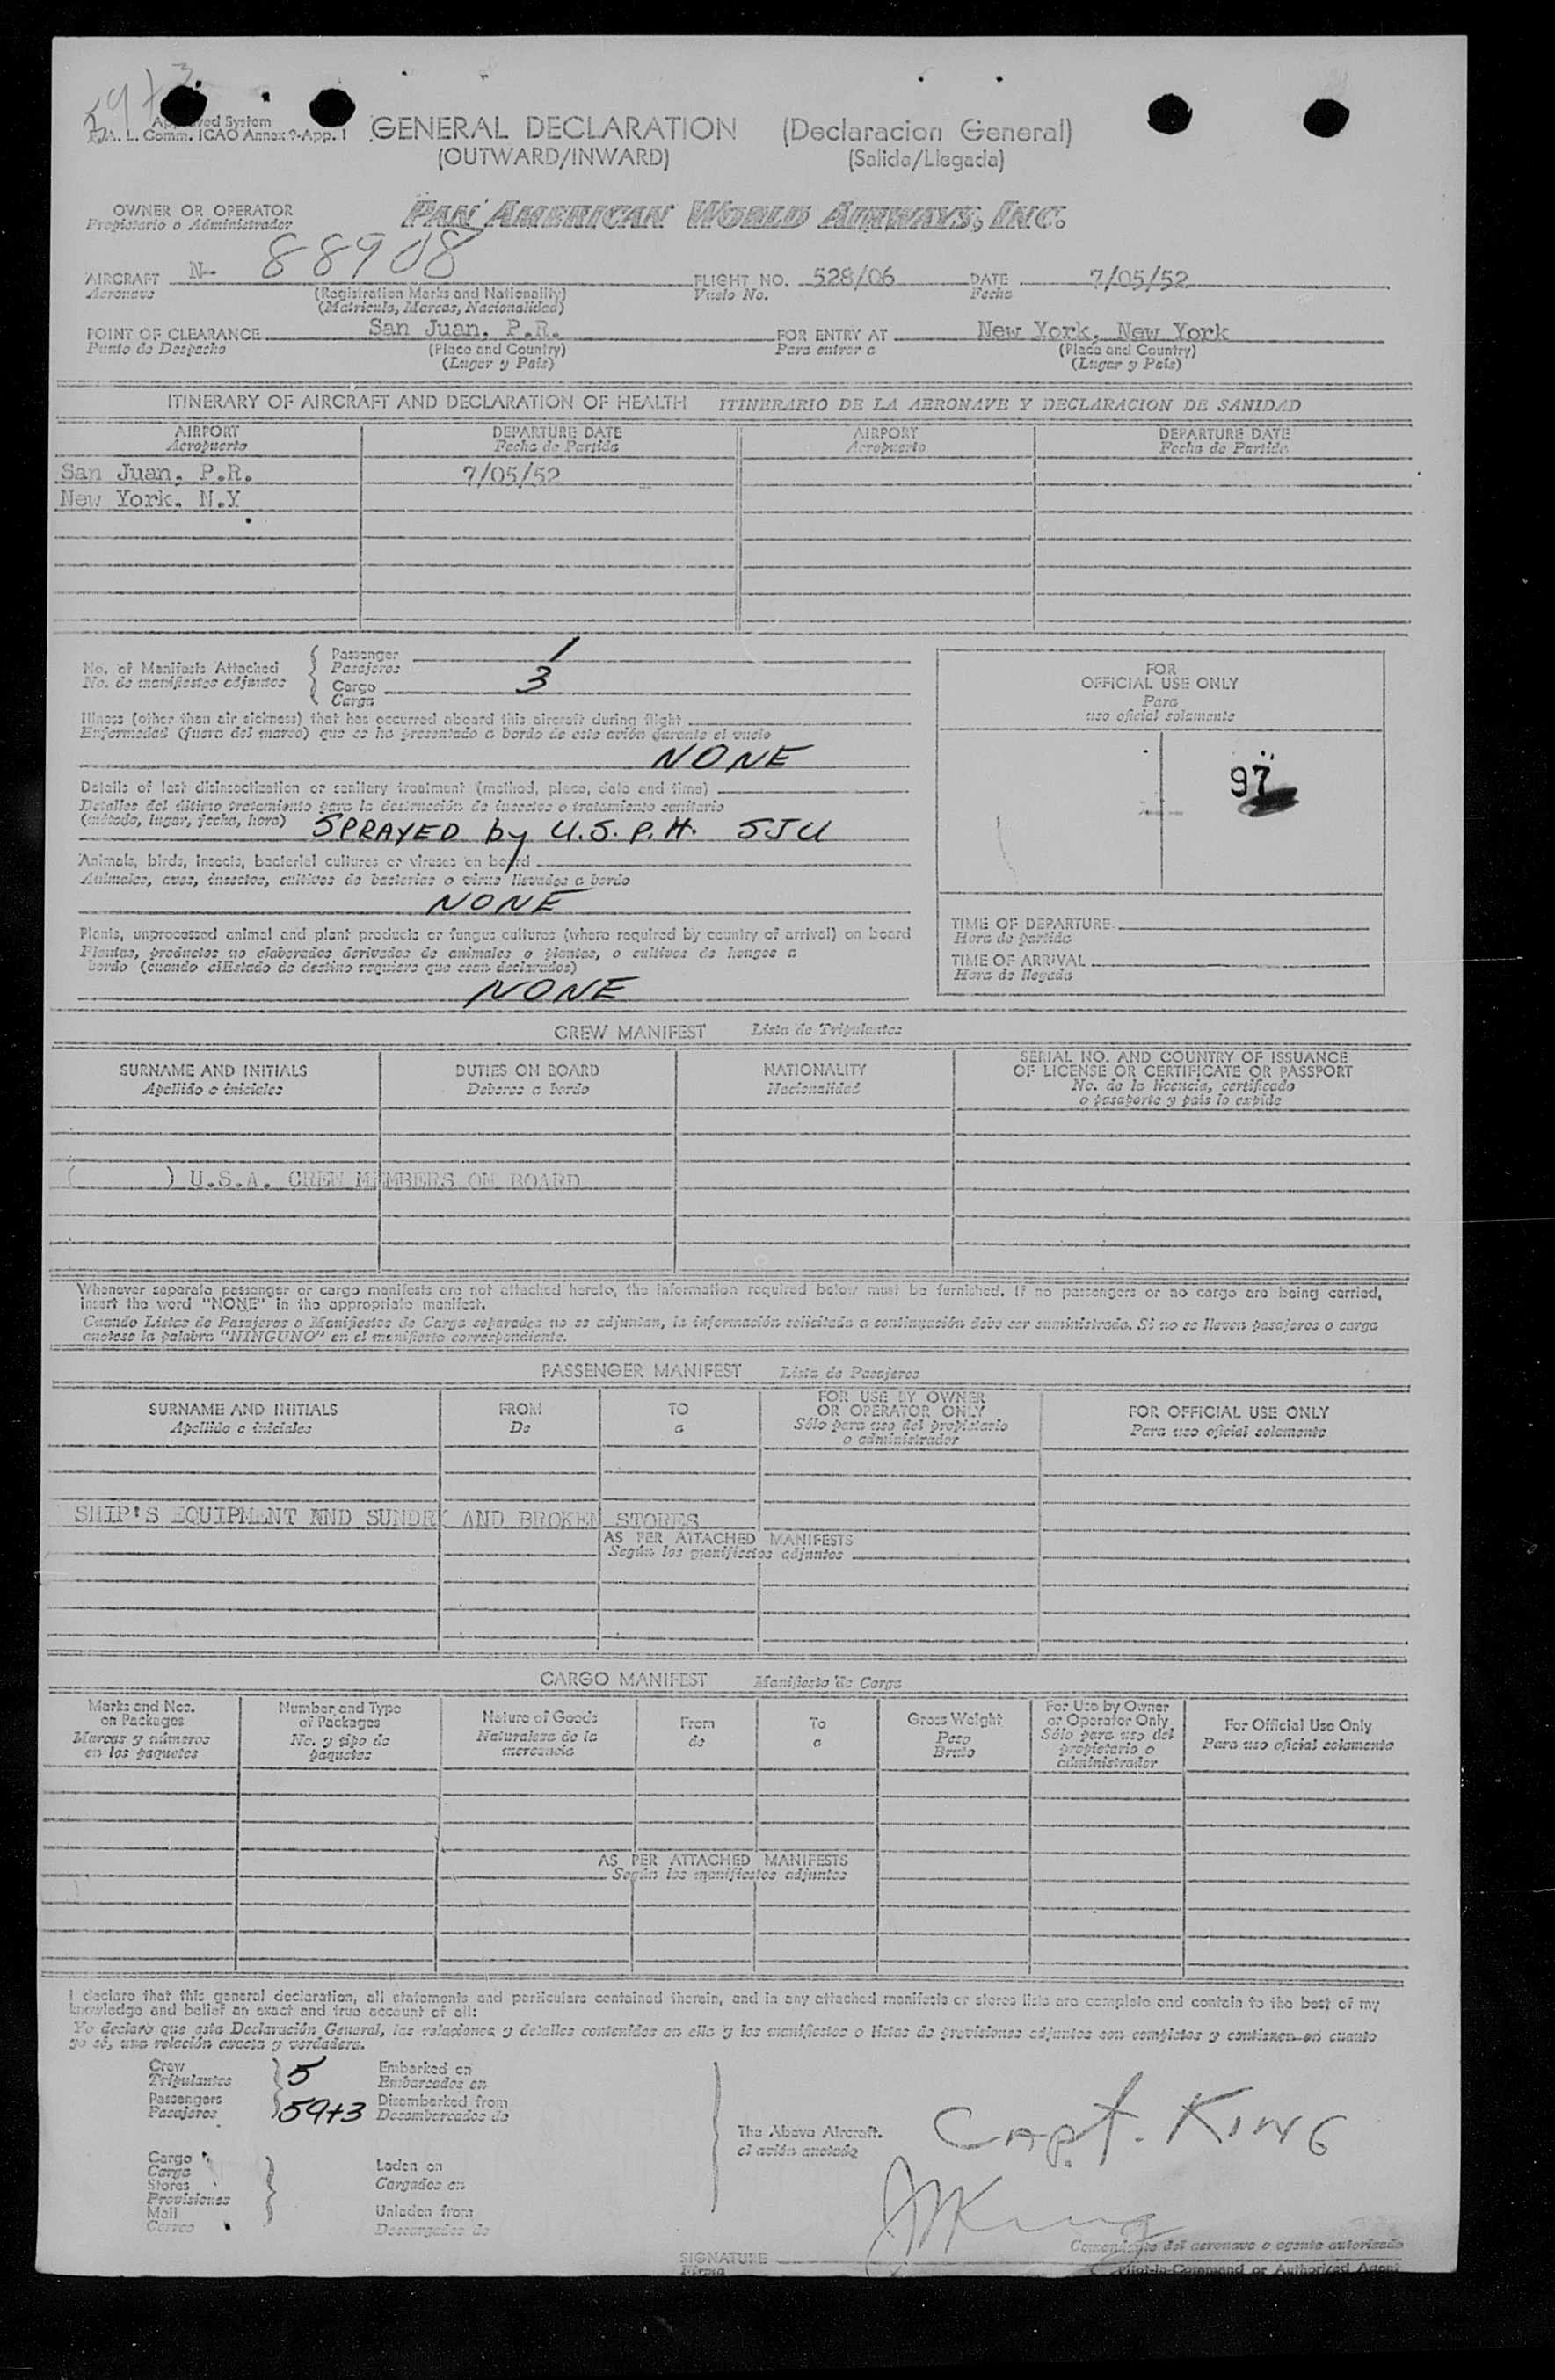 59+3
Approved System
I.A.L. Comm. ICAO Annex 9-App. 1
GENERAL DECLARATION (Declaracion General)
(OUTWARD/INWARD) (Salida/Llegada)
OWNER OR OPERATOR PAN AMERICAN WORLD AIRWAYS, INC.
Propietario o Administrador
AIRCRAFT N- 88908 FLIGHT NO. 528/06 DATE 7/05/52
Aeronave (Registration Marks and Nationality) Vuelo No. Fecha
(Matricula, Marcas, Nacionalidad)
POINT OF CLEARANCE San Juan, P.R. FOR ENTRY AT New York, New York
Punto de Despacho (Place and Country) Para entrar a (Place and Country)
(Lugar y País) (Lugar y País)
ITINERARY OF AIRCRAFT AND DECLARATION OF HEALTH ITINERARIO DE LA AERONAVE Y DECLARACION DE SANIDAD
AIRPORT DEPARTURE DATE AIRPORT DEPARTURE DATE
Aeropuerto Fecha de Partida Aeropuerto Fecha de Partida
San Juan, P.R. 7/05/52
New York, N.Y
No. of Manifests Attached Passenger 1
No. de manifiestos adjuntos Pasajeros
Cargo 3
Carga
Illness (other than air sickness) that has occurred aboard this aircraft during flight
Enfermedad (fuera del mareo) que se ha presentado a bordo de este avión durante el vuelo
NONE
Details of last disinsectization or sanitary treatment (method, place, date and time)
Detalles del último tratamiento para la destrucción de insectos o tratamiento sanitario
(método, lugar, fecha, hora) SPRAYED by U.S.P.H. SJU
Animals, birds, insects, bacterial cultures or viruses on board
Animales, aves, insectos, cultivos de bacterias o virus llevados a bordo
NONE
Plants, unprocessed animal and plant products or fungus cultures (where required by country of arrival) on board
Plantas, productos no elaborados derivados de animales o plantas, o cultivos de hongos a
bordo (cuando elEstado de destino requiera que sean declarados)
NONE
FOR
OFFICIAL USE ONLY
Para
uso oficial solamente
97
TIME OF DEPARTURE
Hora de partida
TIME OF ARRIVAL
Hora de llegada
CREW MANIFEST Lista de Tripulantes
SURNAME AND INITIALS DUTIES ON BOARD NATIONALITY SERIAL NO. AND COUNTRY OF ISSUANCE
OF LICENSE OR CERTIFICATE OR PASSPORT
Apellido e iniciales Deberes a bordo Nacionalidad No. de la licencia, certificado
o pasaporte y país lo expide
( ) U.S.A. CREW MEMBERS ON BOARD
Whenever separate passenger or cargo manifests are not attached hereto, the information required below must be furnished. If no passengers or no cargo are being carried,
insert the word "NONE" in the appropriate manifest.
Cuando Listas de Pasajeros o Manifiestos de Carga separados no se adjuntan, la información solicitada a continuación debe ser suministrada. Si no se lleven pasajeros o carga
anotese la palabra "NINGUNO" en el manifiesto correspondiente.
PASSENGER MANIFEST Lista de Pasajeros
SURNAME AND INITIALS FROM TO FOR USE BY OWNER
OR OPERATOR ONLY FOR OFFICIAL USE ONLY
Apellido e iniciales De a Sólo para uso del propietario
o administrador Para uso oficial solamente
SHIP'S EQUIPMENT AND SUNDRY AND BROKEN STORES
AS PER ATTACHED MANIFESTS
Según los manifiestos adjuntos
CARGO MANIFEST Manifiesto de Carga
Marks and Nos.
on Packages
Marcas y números
en los paquetes
Number and Type
of Packages
No. y tipo de
paquetes
Nature of Goods
Naturaleza de la
mercancía
From
de
To
a
Gross Weight
Peso
Bruto
For Use by Owner
or Operator Only
Sólo para uso del
propietario o
administrador
For Official Use Only
Para uso oficial solamente
AS PER ATTACHED MANIFESTS
Según los manifiestos adjuntos
I declare that this general declaration, all statements and particulars contained therein, and in any attached manifests or stores lists are complete and contain to the best of my
knowledge and belief an exact and true account of all:
Yo declaro que esta Declaración General, las relaciones y detalles contenidos en ella y los manifiestos o listas de provisiones adjuntos son completos y contienen en cuanto
yo sé, una relación exacta y verdadera.
Crew 5 Embarked on
Tripulantes Embarcados en
Passengers 59+3 Disembarked from
Pasajeros Desembarcados de
The Above Aircraft.
el avión anotado
CAPT. KING
Cargo
Carga
Stores
Provisiones
Mail
Correo
Laden on
Cargados en
Unladen from
Descargados de
SIGNATURE JKing
Firma
Comandante del aeronave o agente autorizado
Pilot-in-Command or Authorized Agent